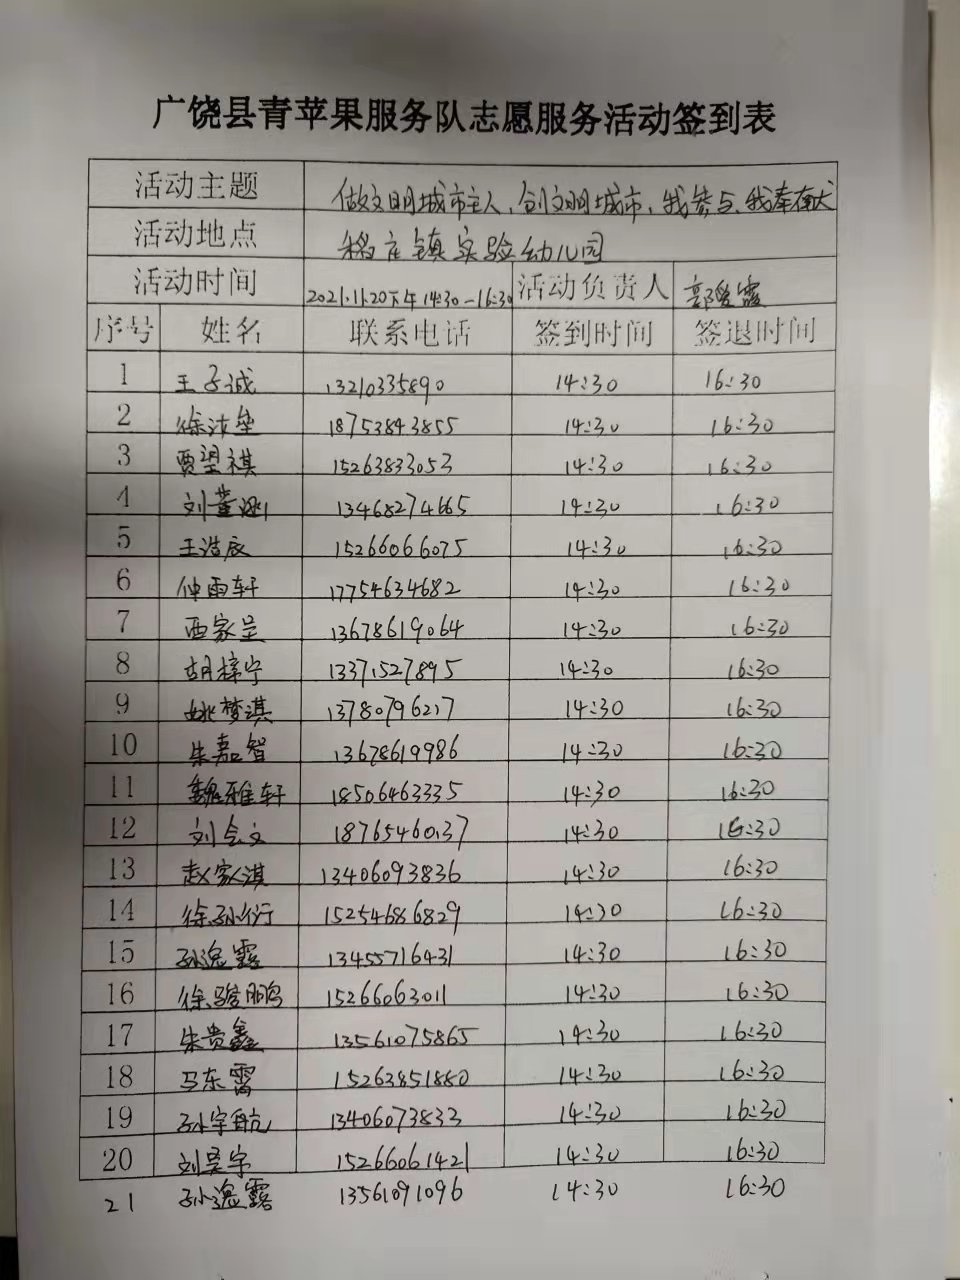 广饶县青苹果服务队志愿服务活动签到表
活动主题 做文明城市主人,创文明城市,我参与,我奉献
活动地点 稻庄镇实验幼儿园
活动时间 2021.11.20下午14:30-16:30 活动负责人 郭爱霞
序号 姓名 联系电话 签到时间 签退时间
1 王子诚 13210335890 14:30 16:30
2 18753843855 14:30 16:30
3 贾望祺 15263833053 14:30 16:30
4 13468274665 14:30 16:30
5 王浩辰 15266066075 14:30 16:30
6 仲雨轩 17754634682 14:30 16:30
7 西家呈 13678619064 14:30 16:30
8 胡梓宁 13371527895 14:30 16:30
9 姚梦淇 13780796217 14:30 16:30
10 朱嘉智 13678619986 14:30 16:30
11 魏雅轩 18506463335 14:30 16:30
12 刘会文 18765460137 14:30 16:30
13 赵家淇 13406093836 14:30 16:30
14 徐孙衍 15254686829 14:30 16:30
15 孙逸露 13455716431 14:30 16:30
16 徐骏鹏 15266063011 14:30 16:30
17 朱贵鑫 13561075865 14:30 16:30
18 马东雷 15263851880 14:30 16:30
19 孙宇航 13406073833 14:30 16:30
20 刘昊宇 15266061421 14:30 16:30
21 孙逸露 13561091096 14:30 16:30